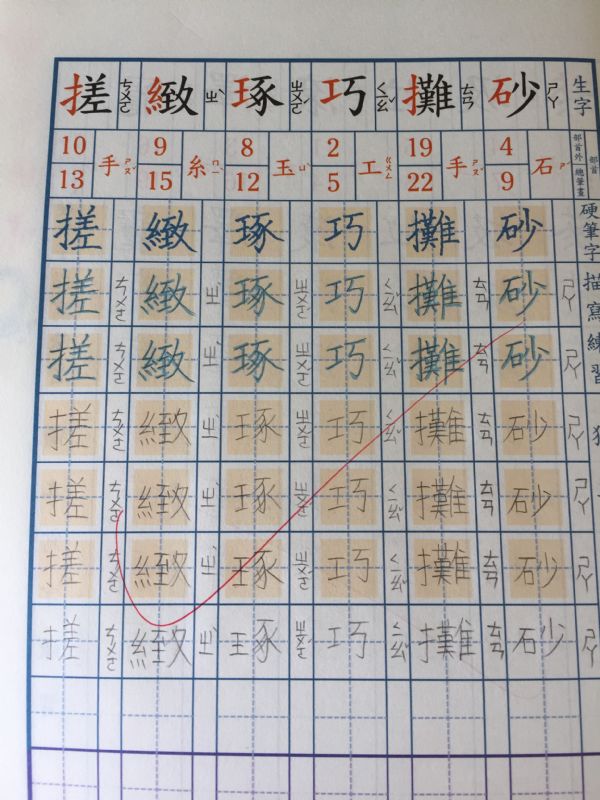 生字
部首
部首外
總筆畫
硬筆字描寫練習
砂 ㄕㄚ
4
9
石 ㄕˊ
砂
砂 ㄕㄚ
砂 ㄕㄚ
砂 ㄕㄚ
砂 ㄕㄚ
砂 ㄕㄚ
砂 ㄕㄚ
攤 ㄊㄢ
19
22
手 ㄕㄡˇ
攤
攤 ㄊㄢ
攤 ㄊㄢ
攤 ㄊㄢ
攤 ㄊㄢ
攤 ㄊㄢ
攤 ㄊㄢ
巧 ㄑㄧㄠˇ
2
5
工 ㄍㄨㄥ
巧
巧 ㄑㄧㄠˇ
巧 ㄑㄧㄠˇ
巧 ㄑㄧㄠˇ
巧 ㄑㄧㄠˇ
巧 ㄑㄧㄠˇ
巧 ㄑㄧㄠˇ
琢 ㄓㄨㄛˊ
8
12
玉 ㄩˋ
琢
琢 ㄓㄨㄛˊ
琢 ㄓㄨㄛˊ
琢 ㄓㄨㄛˊ
琢 ㄓㄨㄛˊ
琢 ㄓㄨㄛˊ
琢 ㄓㄨㄛˊ
緻 ㄓˋ
9
15
糸 ㄇㄧˋ
緻
緻 ㄓˋ
緻 ㄓˋ
緻 ㄓˋ
緻 ㄓˋ
緻 ㄓˋ
緻 ㄓˋ
搓 ㄘㄨㄛ
10
13
手 ㄕㄡˇ
搓
搓 ㄘㄨㄛ
搓 ㄘㄨㄛ
搓 ㄘㄨㄛ
搓 ㄘㄨㄛ
搓 ㄘㄨㄛ
搓 ㄘㄨㄛ